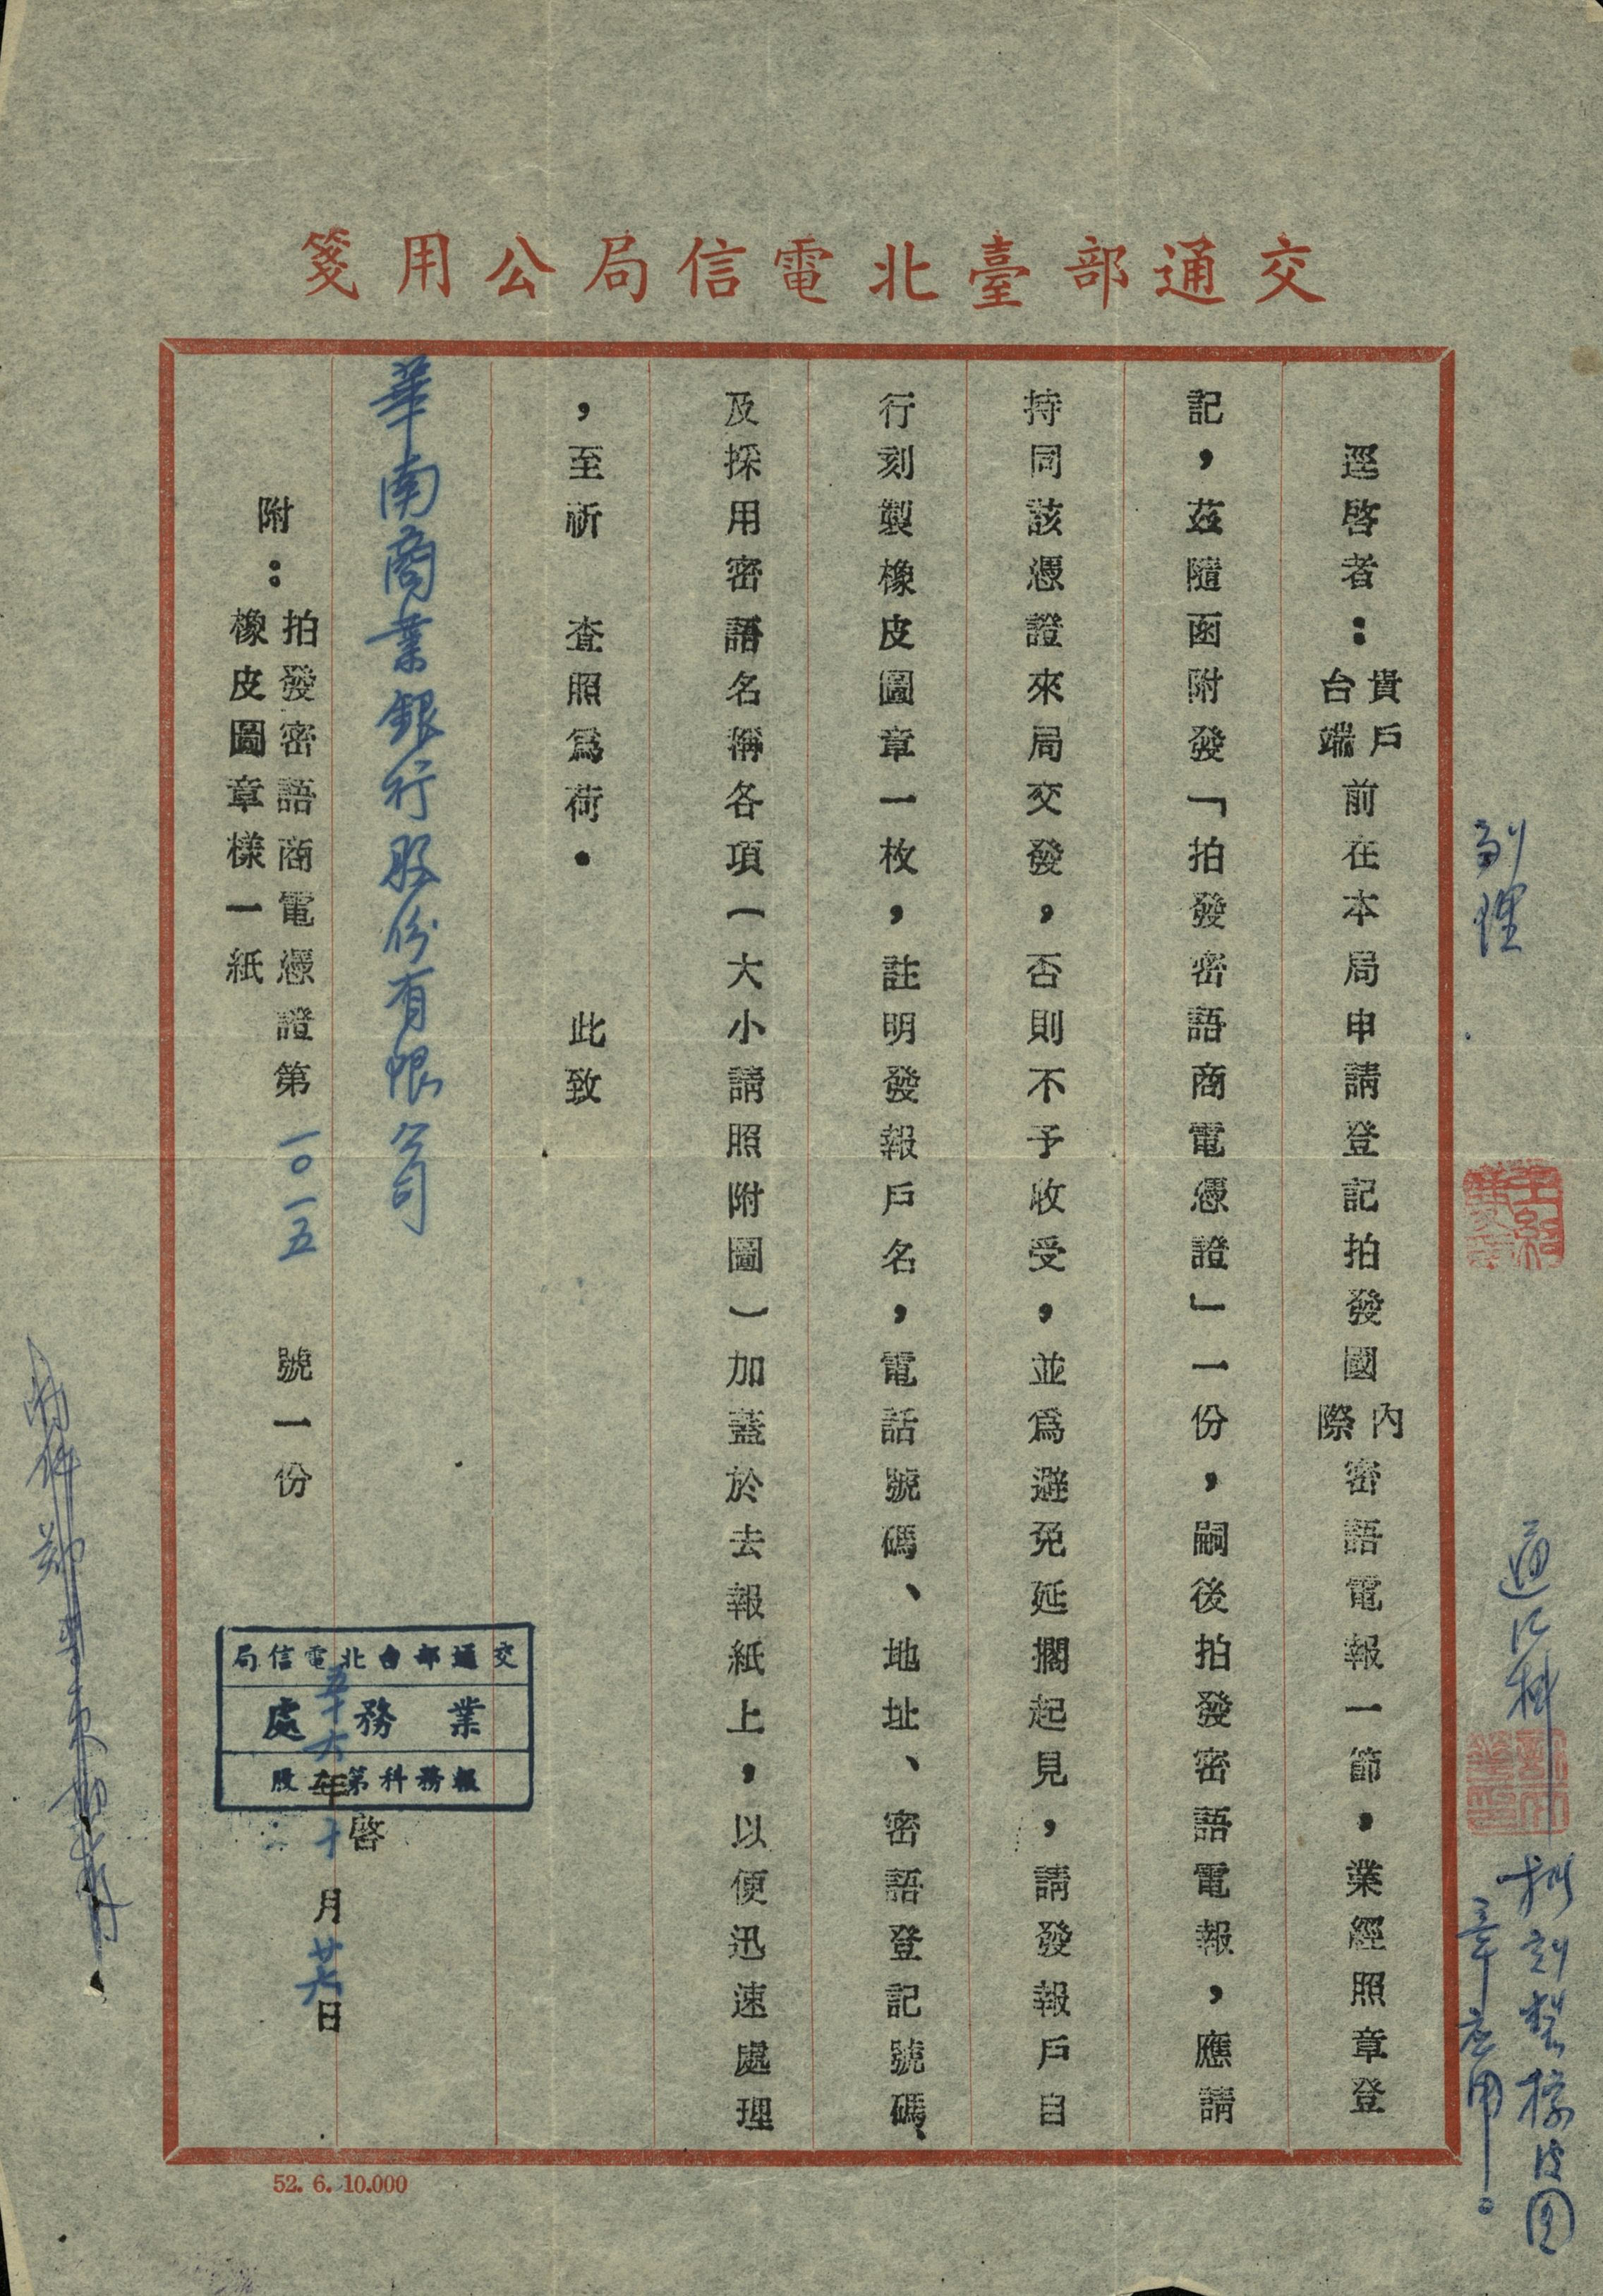 交通部臺北電信局公用箋
逕啓者：貴戶台端前在本局申請登記拍發國內際密語電報一節，業經照章登
記，茲隨函附發「拍發密語商電憑證」一份，嗣後拍發密語電報，應請
持同該憑證來局交發，否則不予收受，並爲避免延擱起見，請發報戶自
行刻製橡皮圖章一枚，註明發報戶名，電話號碼、地址、密語登記號碼、
及採用密語名稱各項（大小請照附圖）加蓋於去報紙上，以便迅速處理
，至祈　查照爲荷．　此致
華南商業銀行股份有限公司
附：拍發密語商電憑證第一〇一五號一份
橡皮圖章樣一紙
交通部台北電信局
業務處
報務科第　股
啓
五十六年十月廿六日
52. 6. 10.000
副理
擬刻製橡皮圖
章應用。